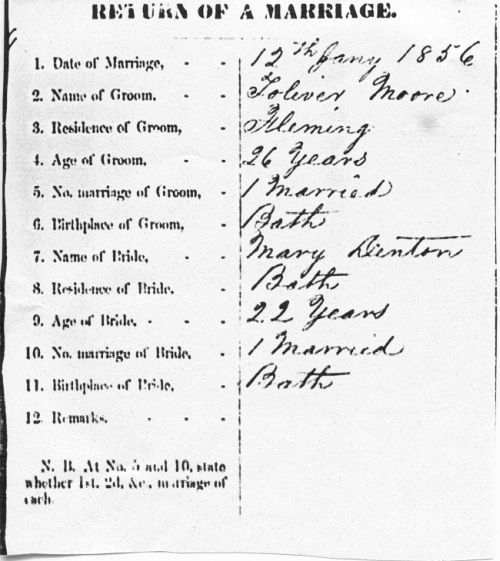 RETURN OF A MARRIAGE.
1. Date of Marriage, - - 12th Jany 1856
2. Name of Groom. - - Toliver Moore.
3. Residence of Groom, - Fleming
4. Age of Groom, - - 26 Years
5. No. marriage of Groom, - 1 Married
6. Birthplace of Groom, - Bath
7. Name of Bride, - - Mary Denton
8. Residence of Bride. - Bath
9. Age of Bride, - - - 22 Years
10. No. marriage of Bride, - 1 Married
11. Birthplace of Bride, - Bath
12. Remarks. - - -
N. B. At No. 5 and 10, state
whether 1st. 2d, &c, marriage of
each.